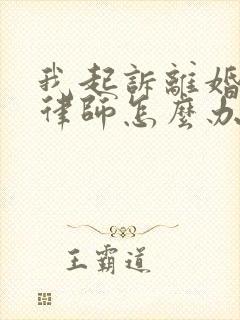 我起訴離婚
律師怎麼办
王霸道